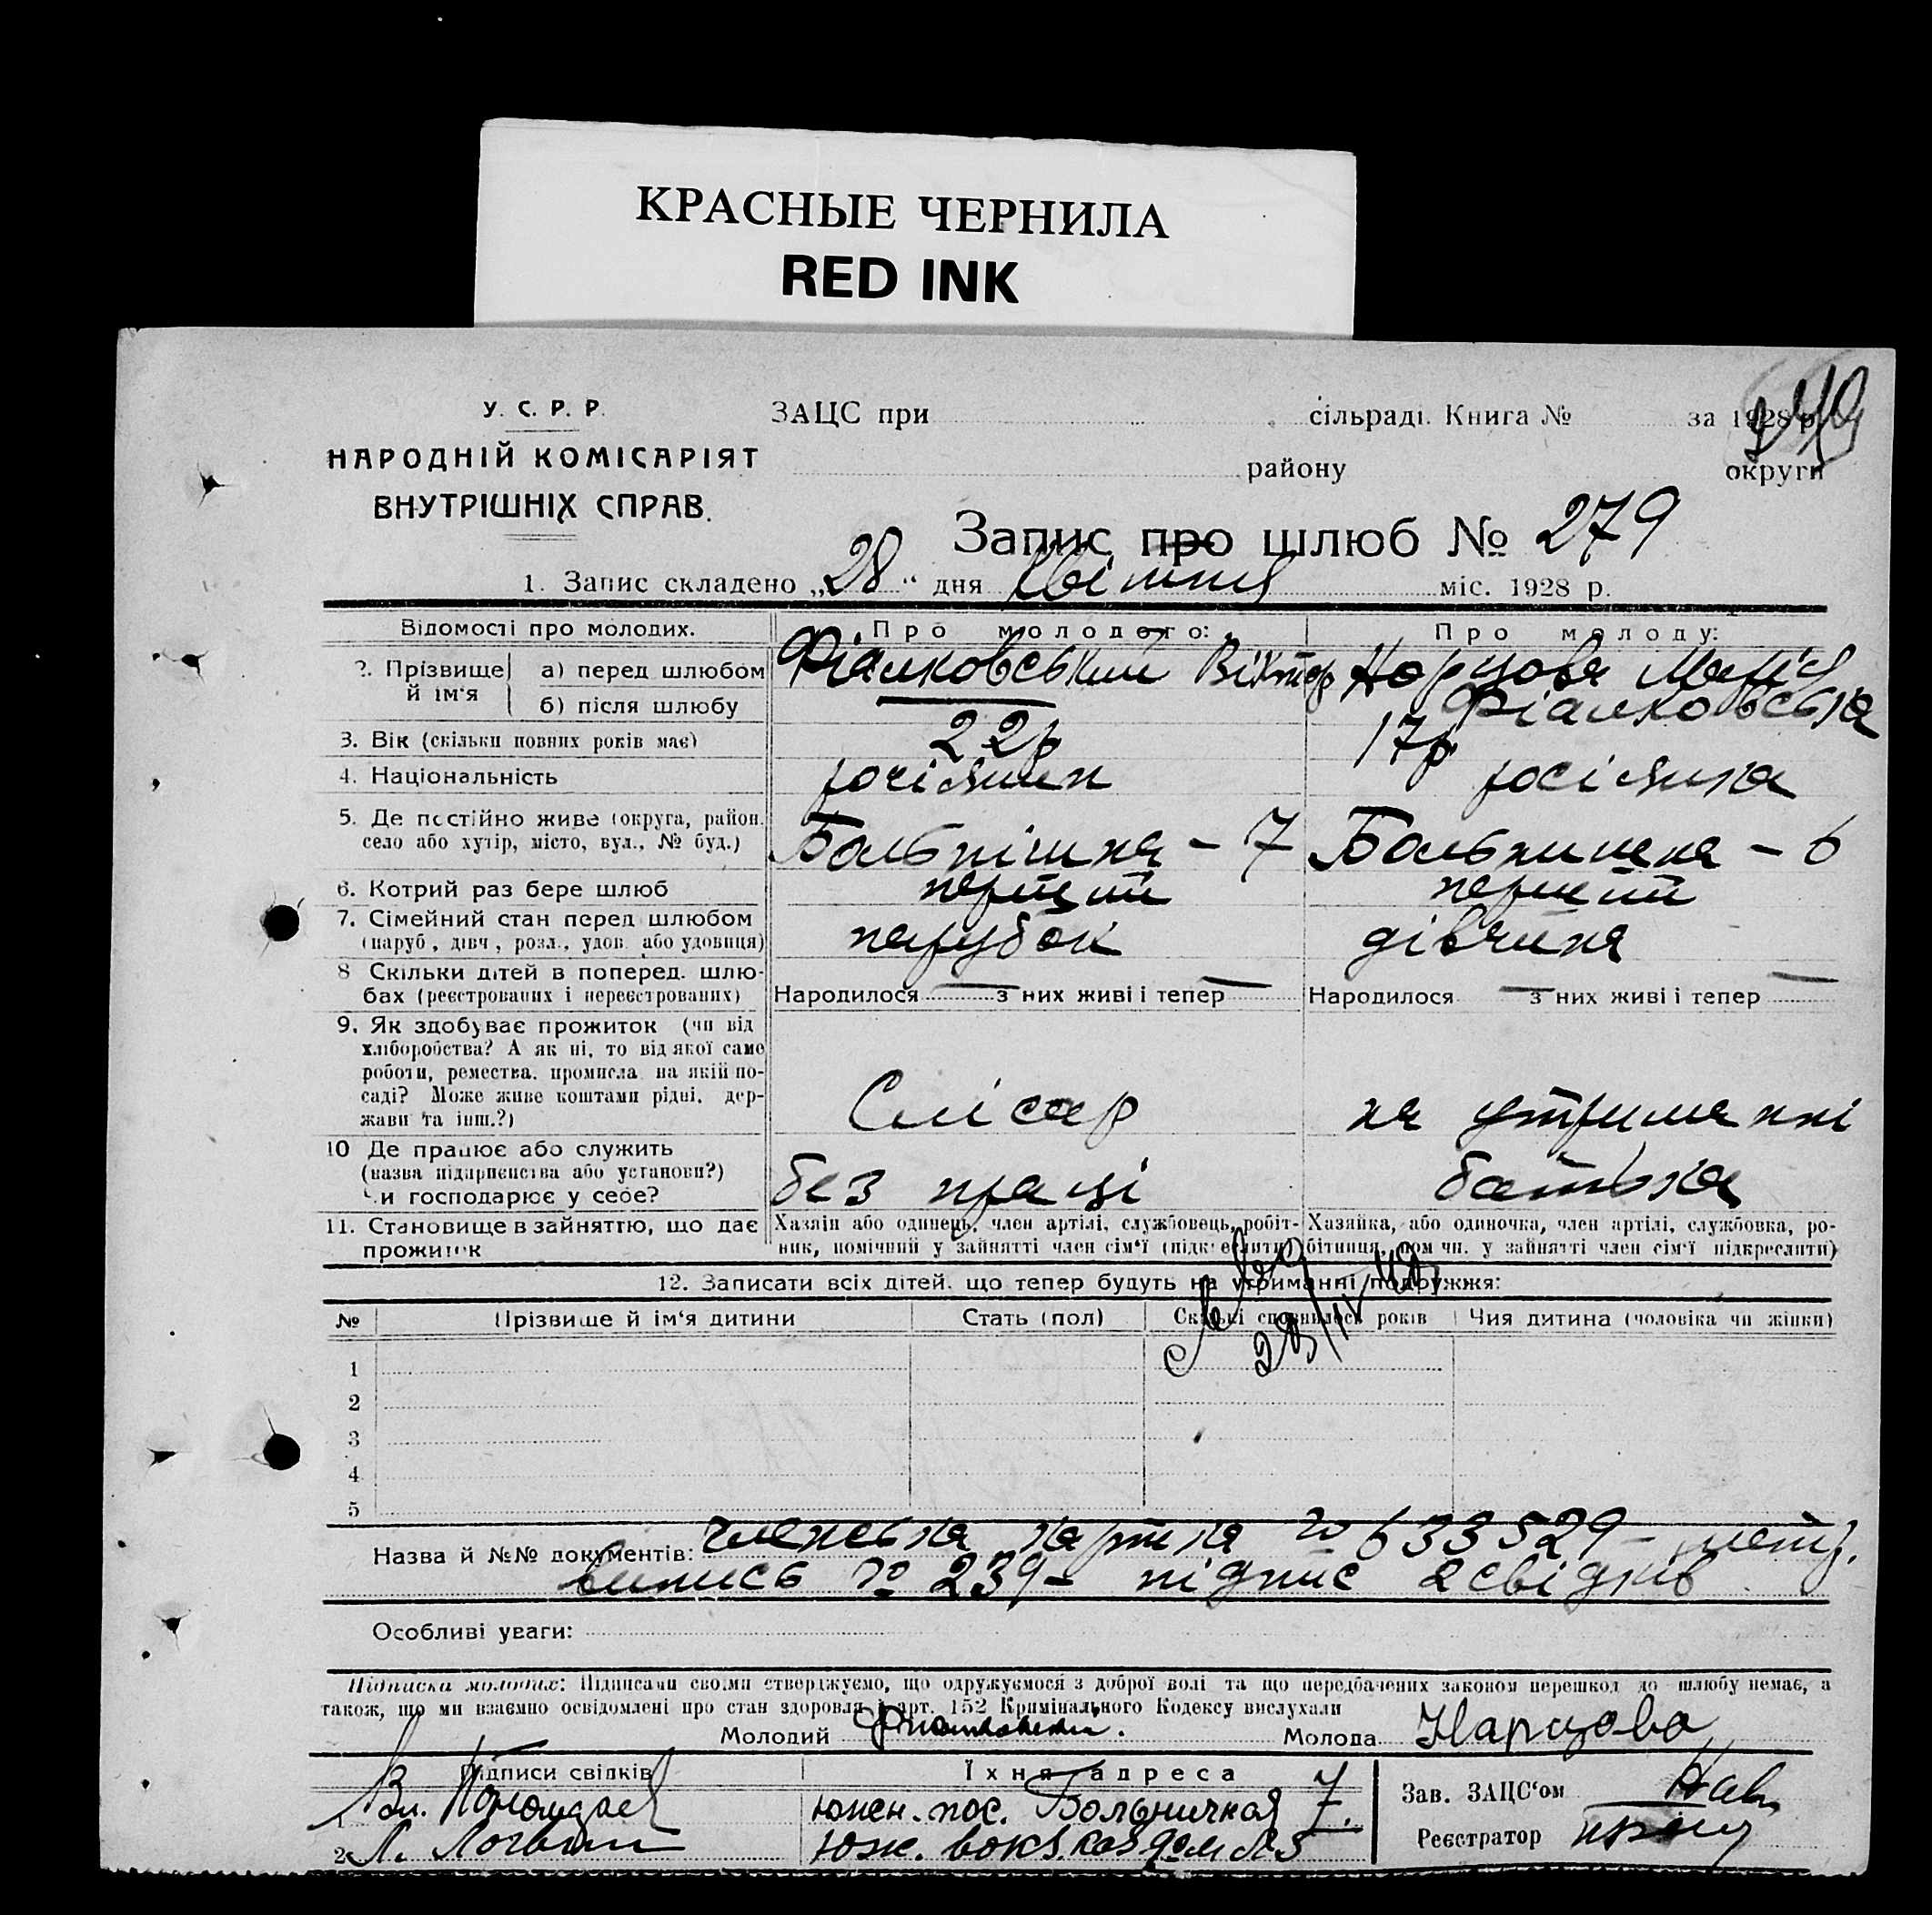 КРАСНЫЕ ЧЕРНИЛА
RED INK
У. С. Р. Р.
НАРОДНІЙ КОМІСАРІЯТ
ВНУТРІШНІХ СПРАВ.
ЗАЦС при сільраді. Книга № за 1928 р.
району округи
Запис про шлюб № 279
1. Запис складено „28“ дня квітня міс. 1928 р.
Відомості про молодих. Про молодого: Про молоду:
2. Прізвище й ім‘я а) перед шлюбом Фіалковський Віктор Нарцова Марія
б) після шлюбу Фіалковська
3. Вік (скільки повних років має) 22р 17р
4. Національність росіянин росіянка
5. Де постійно живе (округа, район. село або хутір, місто, вул., № буд.) Больнишна - 7 Больнишна - 6
6. Котрий раз бере шлюб перший перший
7. Сімейний стан перед шлюбом (паруб., дівч., розл., удов. або удовиця) парубок дівчина
8 Скільки дітей в поперед. шлюбах (реєстрованих і нереєстрованих) Народилося — з них живі і тепер — Народилося — з них живі і тепер —
9. Як здобуває прожиток (чи від
хліборобства? А як ні, то від якої саме
роботи, ремества, промисла на якій по-
саді? Може живе коштами рідні, дер-
жави та інш.?) Слісар на утриманні
10 Де працює або служить
(назва підприємства або установи?)
Чи господарює у себе? без праці батька
11. Становище в зайняттю, що дає прожиток
Хазяїн або одинець, член артілі, службовець, робіт-
ник, помічний у зайнятті член сім‘ї (підкреслити)
Хазяйка, або одиночка, член артілі, службовка, ро-
бітниця, пом чн. у зайнятті член сім‘ї підкреслити)
12. Записати всіх дітей, що тепер будуть на утриманні подружжя:
№ Прізвище й ім‘я дитини Стать (пол) Скільки сповнилося років Чия дитина (чоловіка чи жінки)
1
2
3
4
5
Назва й №№ документів: членська картка № 633529 - метр.
випись № 239 - підпис 2 свідків
Особливі уваги:
Підписка молодих: Підписами своїми стверджуємо, що одружуємося з доброї волі та що передбачених законом перешкод до шлюбу немає, а
також, що ми взаємно освідомлені про стан здоровля і арт. 152 Кримінального Кодексу вислухали
Молодий Фиалковский. Молода Нарцова
Підписи свідків Їхня адреса
1 Вл. южн. пос. Больничная 7.
2 Л. Логвин юж. вокз. каз дом № 5
Зав. ЗАЦС‘ом
Реєстратор